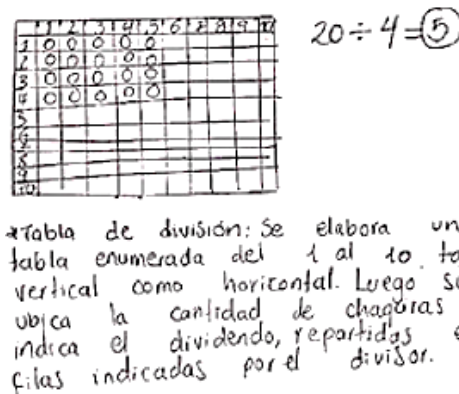 1 2 3 4 5 6 7 8 9 10
1 0 0 0 0 0
2 0 0 0 0 0
3 0 0 0 0 0
4 0 0 0 0 0
5
6
8
9
10
20 ÷ 4 = 5
*Tabla de división: Se elabora un
tabla enumerada del 1 al 10 ta
vertical como horizontal. Luego s
ubica la cantidad de chaquiras
indica el dividendo, repartidas e
filas indicadas por el divisor.